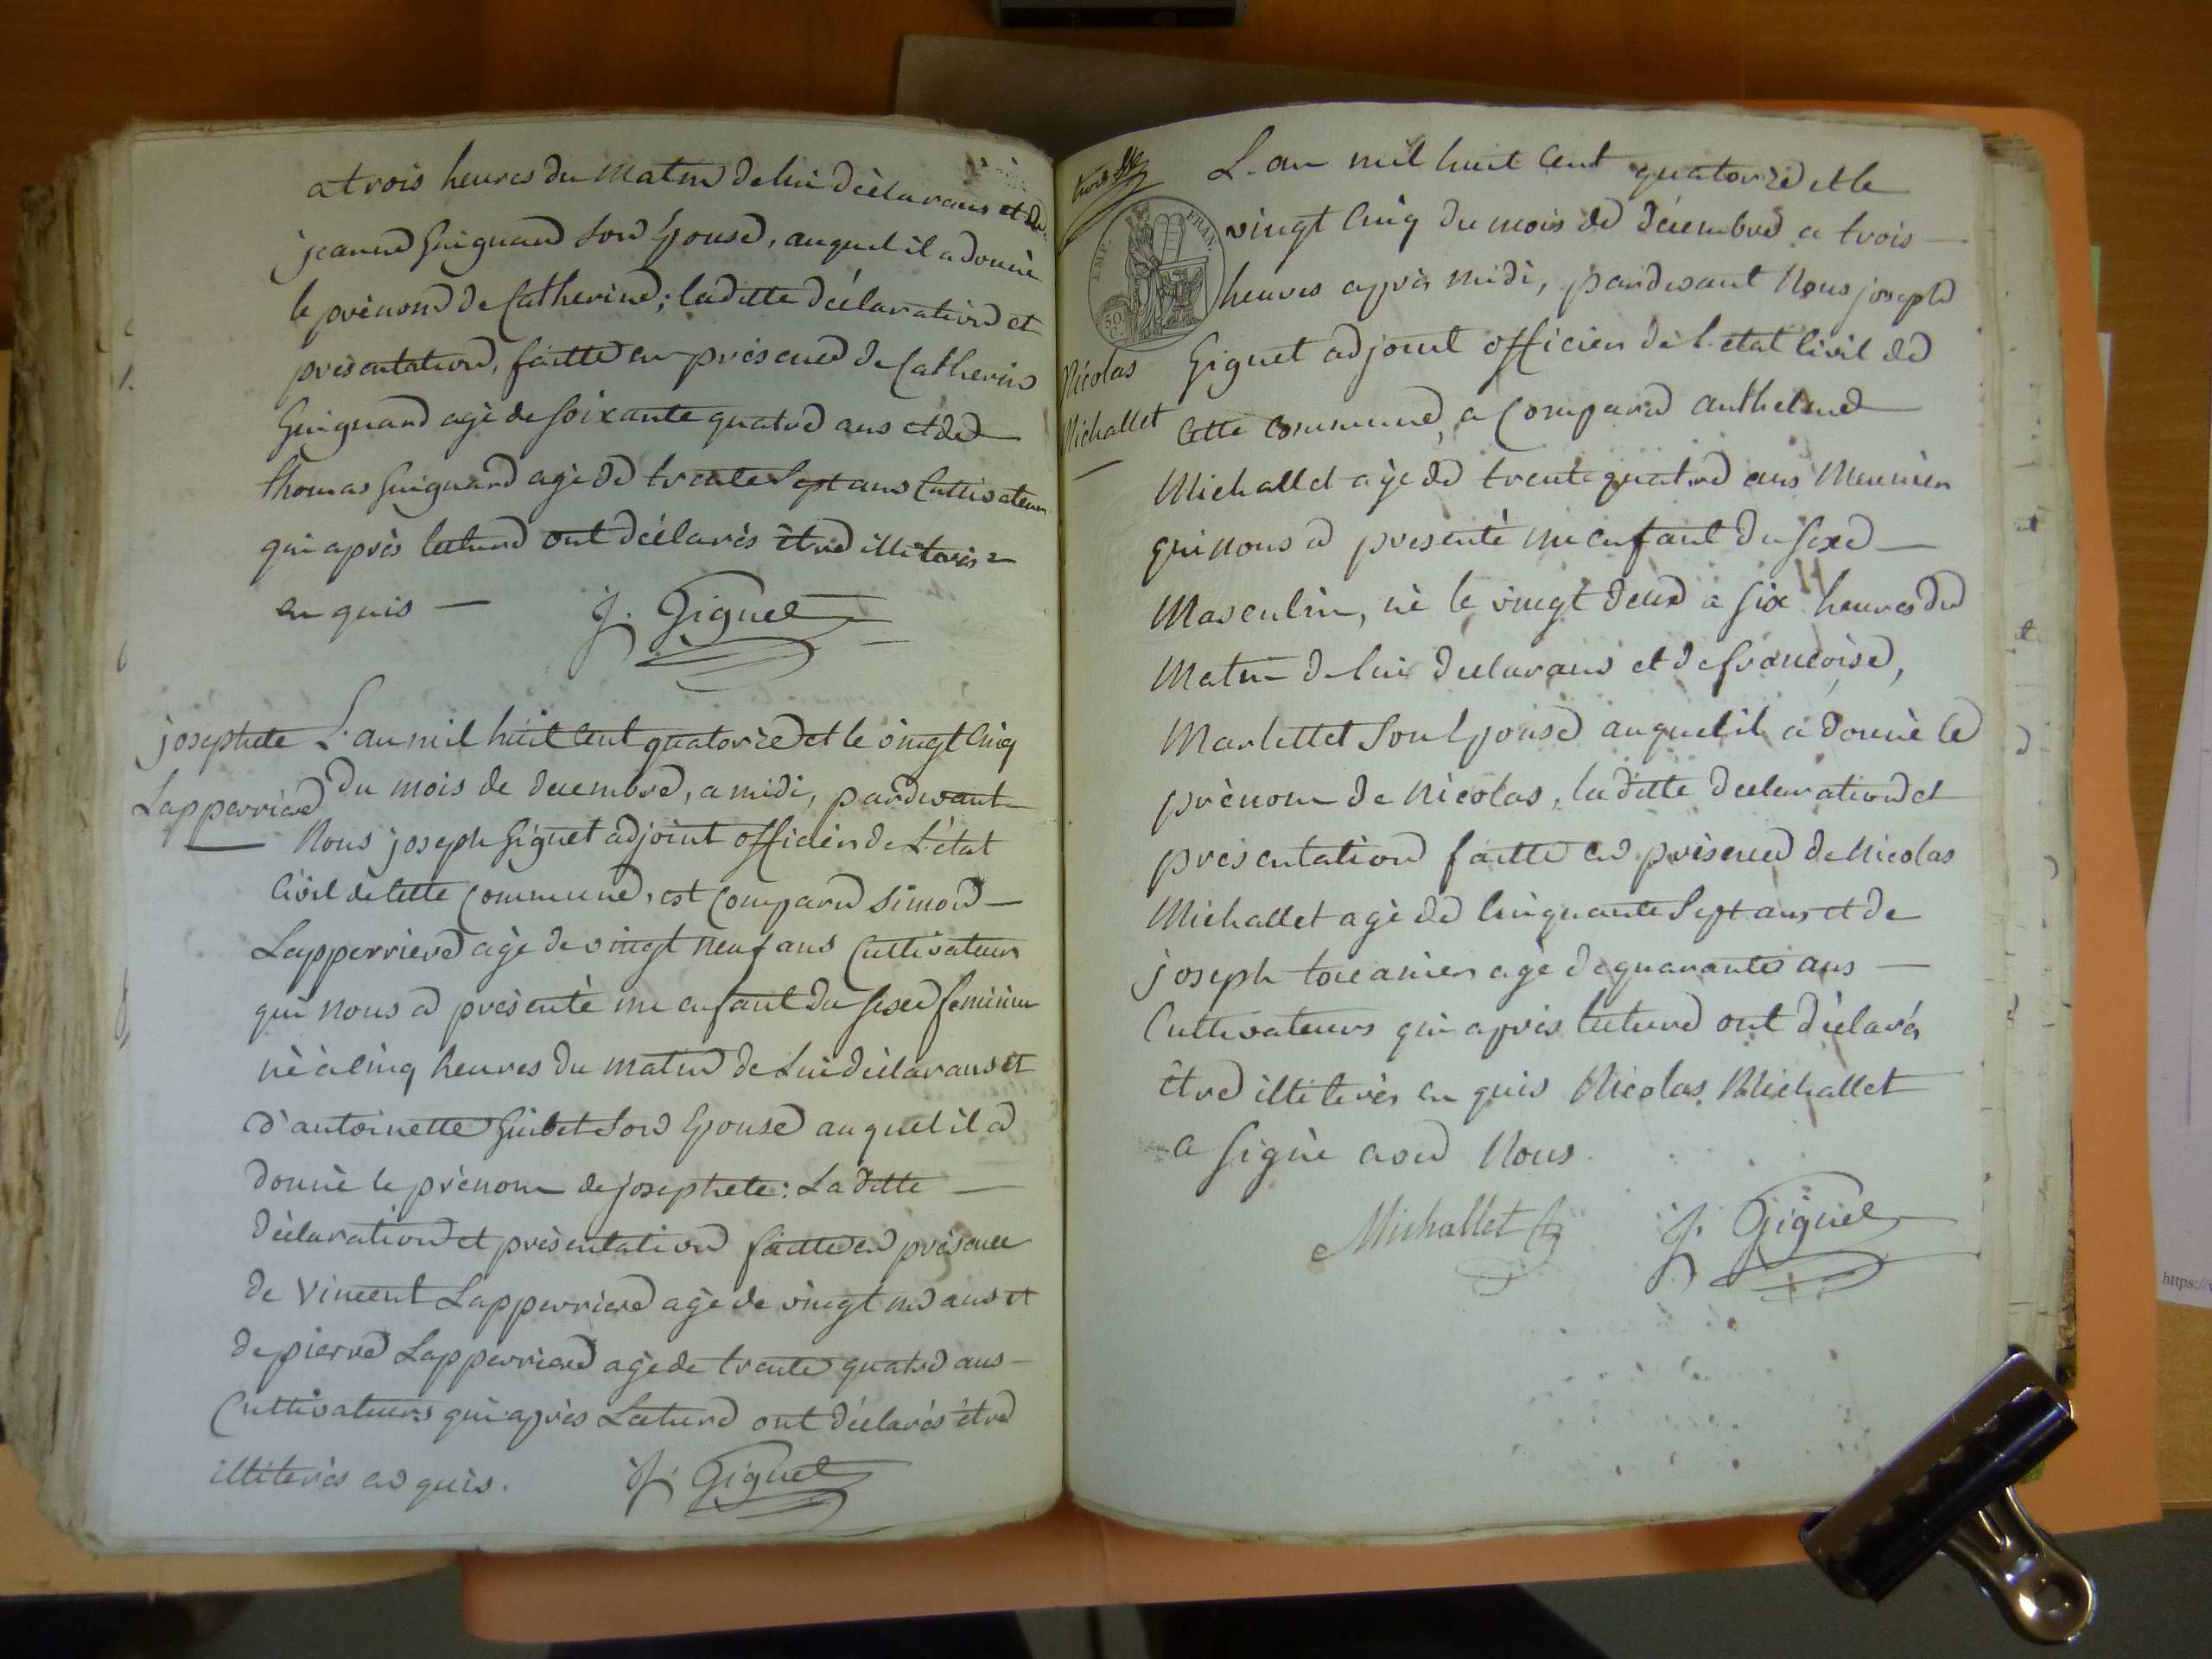 a trois heures du matin de lui déclarans et de
jeanne Guignard son Epouse, auquel il a donnè
le prènom de Catherine; laditte déclaration et
prèsentation, faitte en prèsence de Catherin
Guignard agè de soixante quatre ans et de
thomas Guignard agè de trente Sept ans Cultivateurs
qui après lecture ont déclarès être illiterès
en quis — J. Giguet
josephete
Lapperriere
L'an mil huit cent quatorze et le vingt Cinq
du mois de decembre, a midi, pardevant
Nous joseph Giguet adjoint officier de L'état
Civil de Cette Commune, est Comparu simon —
Lapperriere agè de vingt neuf ans Cultivateur
qui nous a prèsentè un enfant du sexe feminin
nè à cinq heures du matin de Lui déclarans et
d'antoinette Guibet son Epouse auquel il a
donnè le prènom de josephete: La ditte —
déclaration et prèsentation faitte en prèsence
de Vincent Lapperriere agè de vingt un ans et
de pierre Lapperriere agè de trente quatre ans —
Cultivateurs qui après Lecture ont déclarès être
illiterès en quis. J. Giguet
L'an mil huit Cent quatorze et le
vingt Cinq du mois de décembre a trois —
heures après midi, pardevant Nous joseph
Giguet adjoint officier de l'etat Civil de
Cette Commune, a Comparu anthelme
EMP. FRAN.
50
Nicolas
Michallet
Michallet agè de trente quatre ans Meunier
qui nous a presentè un enfant du sexe —
Masculin, nè le vingt deux a six heures du
Matin de lui declarans et de françoise,
Marlettet son Epouse auquel il a donnè le
prènom de Nicolas, la ditte declaration et
presentation faitte en prèsence de Nicolas
Michallet agè de Cinquante Sept ans et de
joseph agè de quarante ans —
Cultivateurs qui après lecture ont déclarés
être illiterès en quis Nicolas Michallet
a signè avec Nous.
Michallet J. Giguet
https://